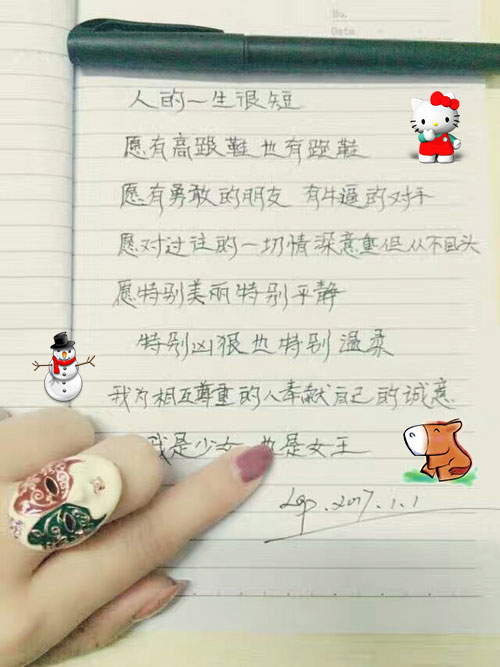 No.
Date
人的一生很短
愿有高跟鞋也有跑鞋
愿有勇敢的朋友 有牛逼的对手
愿对过往的一切情深意重但从不回头
愿特别美丽特别平静
特别凶狠也特别温柔
我为相互尊重的人奉献自己的诚意
我是少女 也是女王
2017.1.1